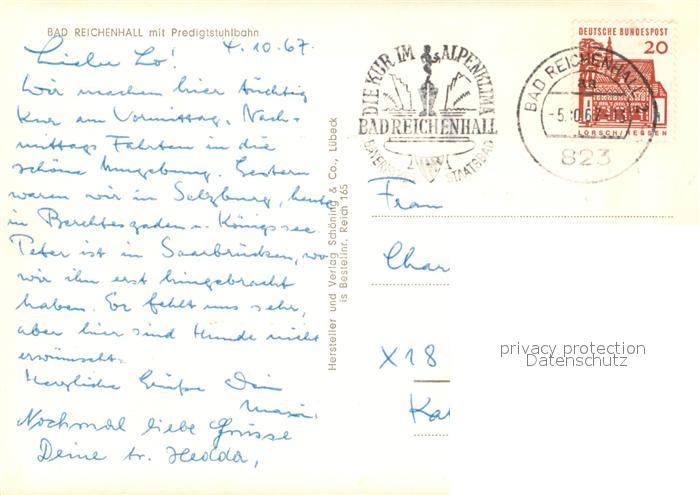 BAD REICHENHALL mit Predigtstuhlbahn
4.10.67.
Liebe Lo!
Wir machen hier tüchtig
Kur am Vormittag, Nach-
mittags Fahrten in die
schöne Umgebung. Gestern
waren wir in Salzburg, heute
in Berchtesgaden u. Königssee.
Peter ist in Saarbrücken, wo
wir ihn erst hingebracht
haben. Er fehlt uns sehr,
aber hier sind Hunde nicht
erwünscht.
Herzliche Grüße Dein
Nochmal liebe Grüsse
Deine tr. Hedda,
Hersteller und Verlag Schöning & Co., Lübeck
is Bestellnr. Reich 165
DIE KUR IM ALPENKLIMA
BAD REICHENHALL
STAATSBAD
DEUTSCHE BUNDESPOST
20
LORSCH/HESSEN
BAD REICHENHALL
aa
-5.10.67
823
Frau
Char
X18
Ka
privacy protection
Datenschutz